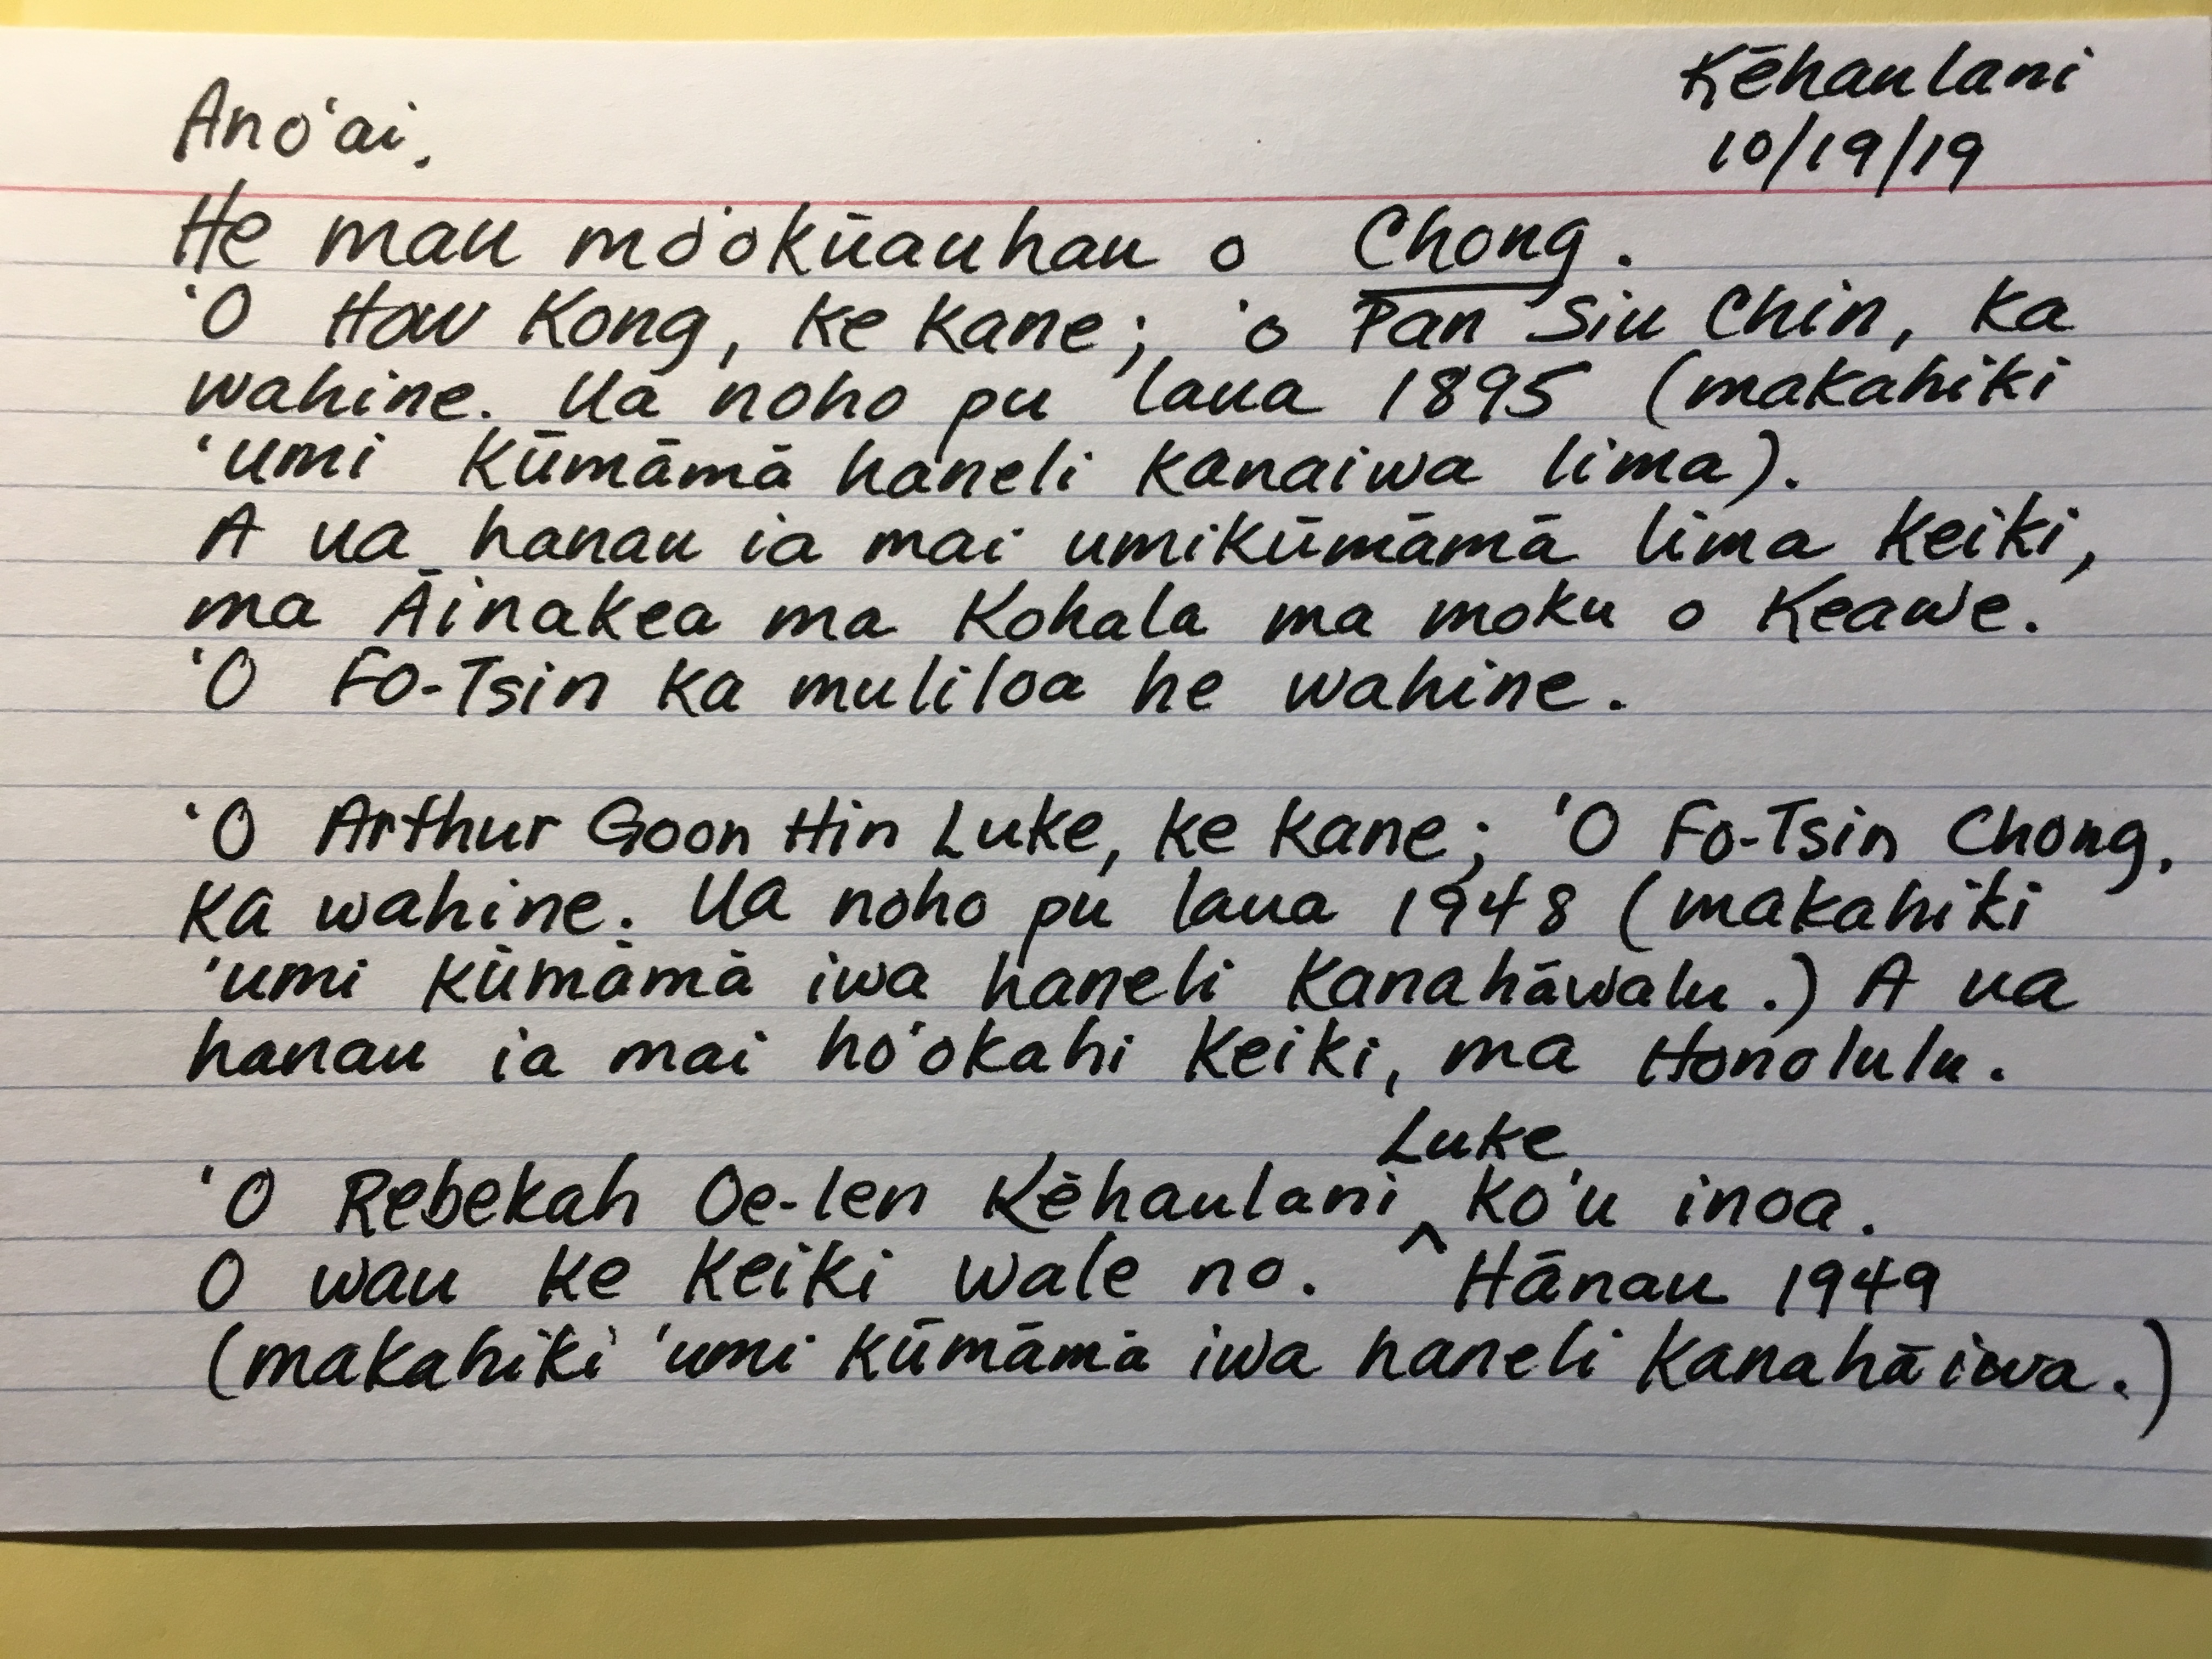 Kēhaulani
10/19/19
Ano‘ai.
He mau mo‘okūauhau o Chong.
‘O How Kong, ke kane; ‘o Pan Siu Chin, ka
wahine. Ua noho pu ‘laua 1895 (makahiki
‘umi kūmāmā haneli kanaiwa lima).
A ua hanau ia mai umikūmāmā lima keiki,
ma Āinakea ma Kohala ma moku o Keawe.
‘O Fo-Tsin ka muliloa he wahine.
‘O Arthur Goon Hin Luke, ke kane; ‘O Fo-Tsin Chong,
ka wahine. Ua noho pu laua 1948 (makahiki
‘umi kūmāmā iwa haneli kanahāwalu.) A ua
hanau ia mai ho‘okahi keiki, ma Honolulu.
‘O Rebekah Oe-len Kēhaulani ^ Luke ko‘u inoa.
O wau ke keiki wale no. Hānau 1949
(makahiki ‘umi kūmāmā iwa haneli kanahāiwa.)